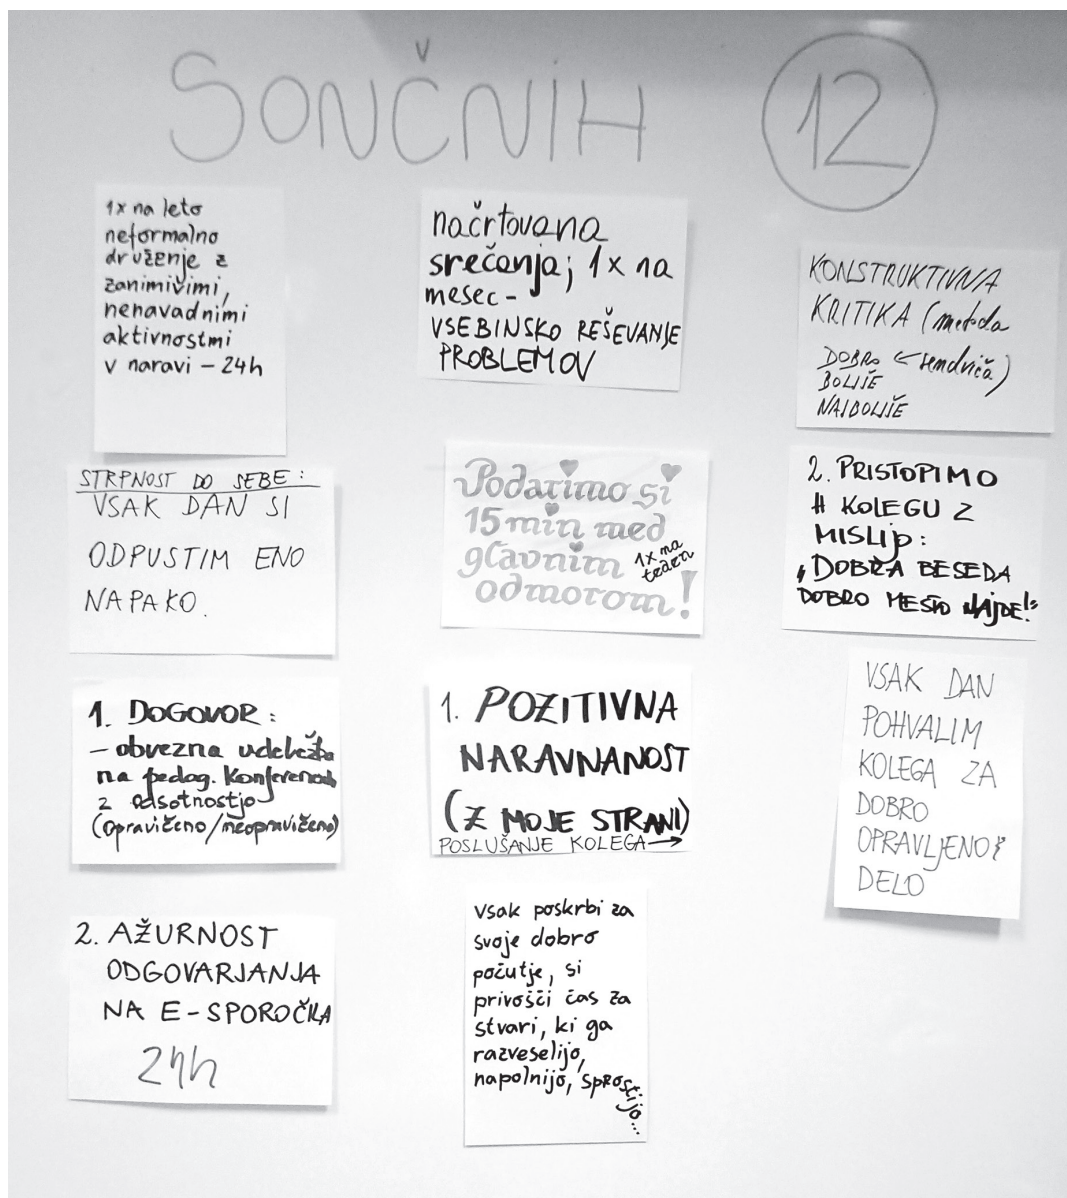 SONČNIH 12
1x na leto
neformalno
druženje z
zanimivimi,
nenavadnimi
aktivnostmi
v naravi – 24h
STRPNOST DO SEBE:
VSAK DAN SI
ODPUSTIM ENO
NAPAKO.
1. DOGOVOR:
– obvezna udeležba
na pedag. konferencah
z odsotnostjo
(opravičeno/neopravičeno)
2. AŽURNOST
ODGOVARJANJA
NA E-SPOROČILA
24h
načrtovana
srečanja; 1x na
mesec –
VSEBINSKO REŠEVANJE
PROBLEMOV
Podarimo si
15 min med
glavnim
odmorom!
1x na
teden
1. POZITIVNA
NARAVNANOST
(Z MOJE STRANI)
POSLUŠANJE KOLEGA →
vsak poskrbi za
svoje dobro
počutje, si
privošči čas za
stvari, ki ga
razveselijo,
napolnijo, sprostijo...
KONSTRUKTIVNA
KRITIKA (metoda
DOBRO ← sendviča)
BOLJŠE
NAJBOLJŠE
2. PRISTOPIMO
H KOLEGU Z
MISLIJO:
"DOBRA BESEDA
DOBRO MESTO NAJDE!"
VSAK DAN
POHVALIM
KOLEGA ZA
DOBRO
OPRAVLJENO
DELO